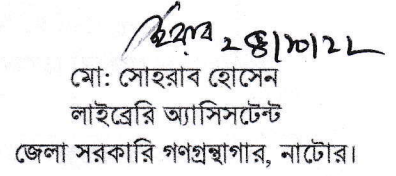 ২৪/১০/২২
মো: সোহরাব হোসেন
লাইব্রেরি অ্যাসিসটেন্ট
জেলা সরকারি গণগ্রন্থাগার, নাটোর।